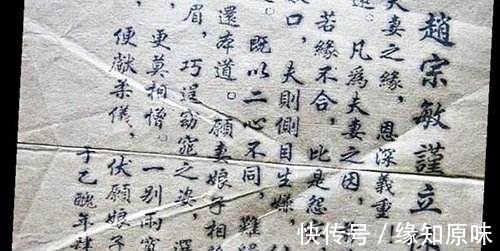 趙宗敏謹立
夫妻之緣，恩深義重
凡為夫妻之因，
若緣不合，比是怨
口，夫則側目生嫌，
。既以二心不同，難
還本道。願妻娘子相
眉，巧逞窈窕之姿，選
更莫相憎。一別兩寬
便獻柔儀，伏願娘子
于乙醜年肆
快传号 / 缘知原味